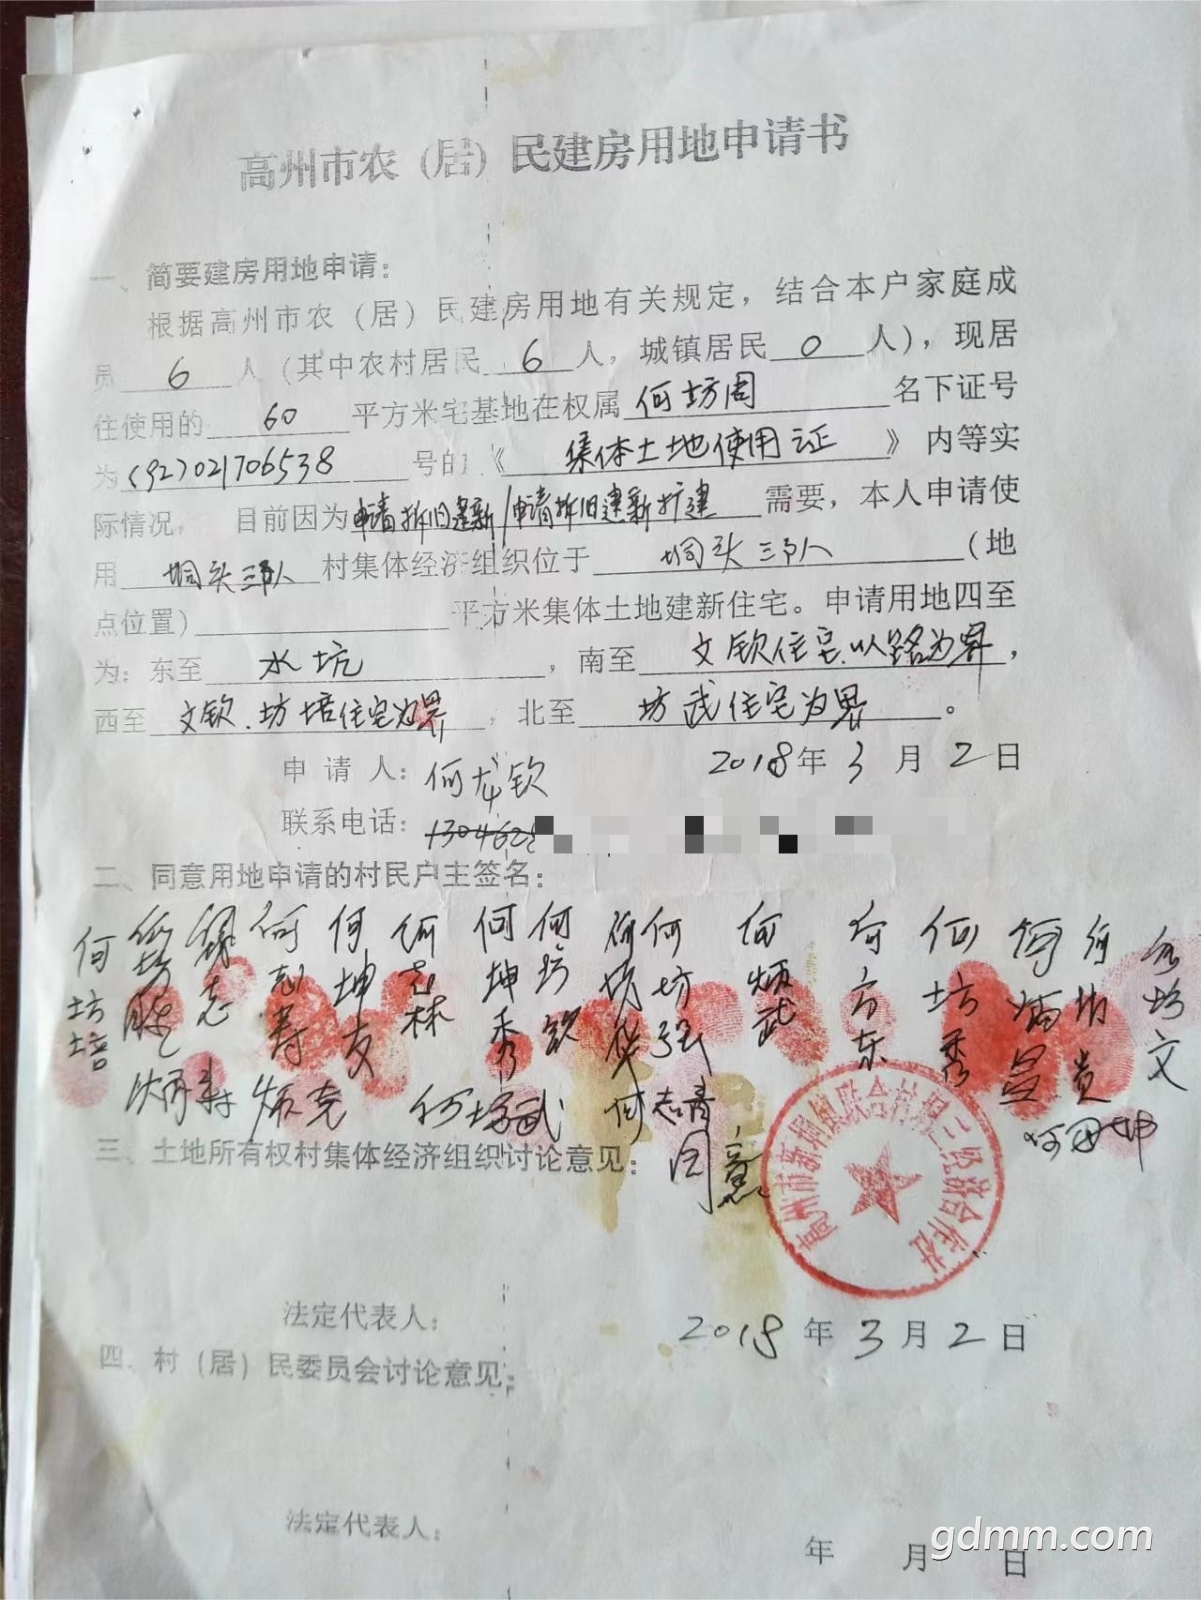 高州市农（居）民建房用地申请书
一、简要建房用地申请：
根据高州市农（居）民建房用地有关规定，结合本户家庭成
员 6 人（其中农村居民 6 人，城镇居民 0 人），现居
住使用的 60 平方米宅基地在权属 何坊周 名下证号
为 (92)021706538 号的《 集体土地使用证 》内等实
际情况， 目前因为 申请拆旧建新/申请拆旧建新扩建 需要，本人申请使
用 垌头三队 村集体经济组织位于 垌头三队 （地
点位置） 平方米集体土地建新住宅。申请用地四至
为：东至 水坑 ，南至 文钦住宅、以路为界 ，
西至 文钦、坊培住宅为界 ，北至 坊武住宅为界 。
申 请 人：何龙钦 2018年 3 月 2 日
联系电话：1304628
二、同意用地申请的村民户主签名：
何坊培 何志寿 何坤友 何志林 何坤秀 何坊钦 何坊强 何炳武 何方东 何坊秀 何炳昌 何坊贵 何坊文
炳寿 炳克 何坊武 何志清 何田坤
三、土地所有权村集体经济组织讨论意见： 同意
法定代表人： 2018 年 3 月 2 日
四、村（居）民委员会讨论意见：
法定代表人：
年 月 日
gdmm.com